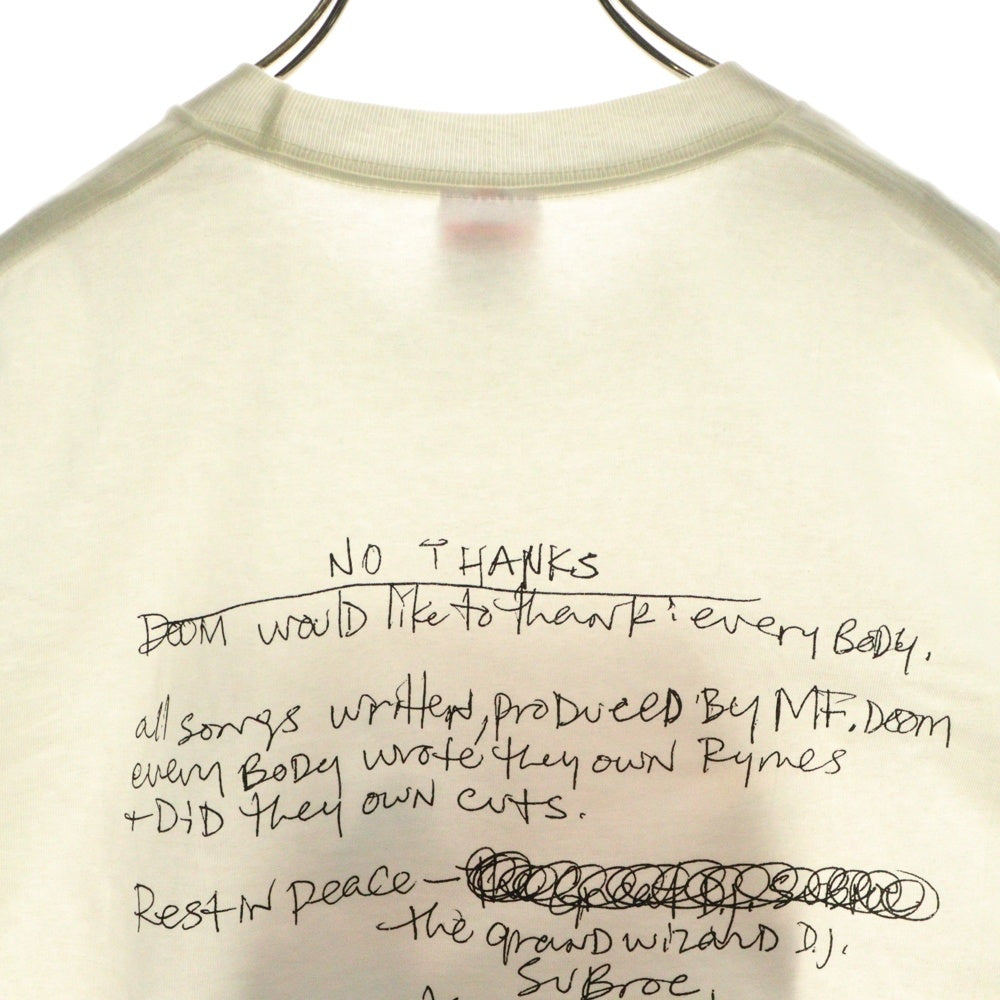 NO THANKS
DOOM would like to thank: every BODY.
all songs written, produced By MF. Doom
every BODy wrote they own Rymes
+ DiD they own cuts.
Rest iN peace — the great D.J. Subroc
- the grand wizard D.J.
SuBroc.